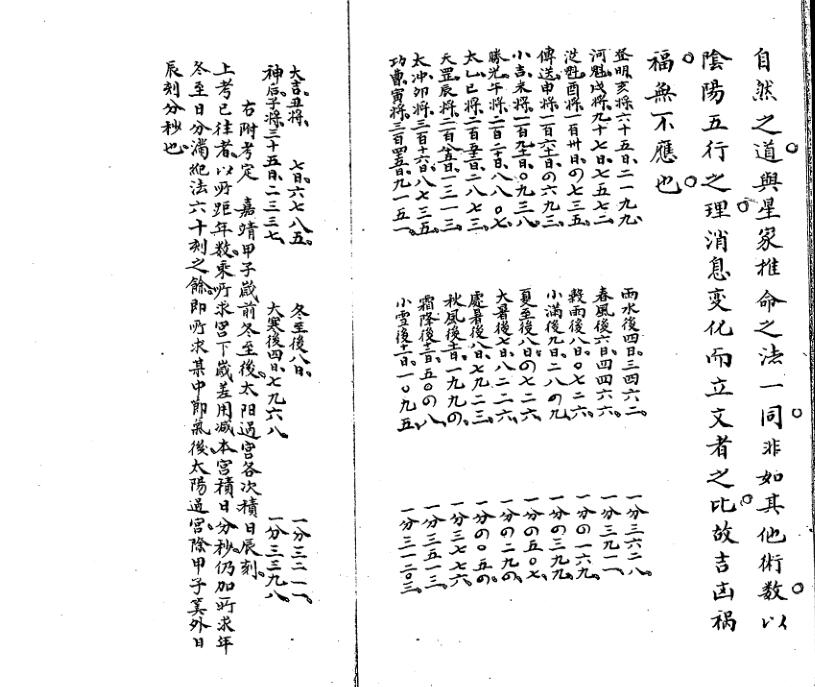 自然之道與星家推命之法一同非如其他術数以
陰陽五行之理消息変化而立文者之比故吉凶禍
福無不應也
登明亥将六十五日二一九九 雨水後四日三四六二 一分三六二八
河魁戌将九十七日七五七二 春風後六日四四六六 一分三九一一
従魁酉将一百卅日の七三五 穀雨後八日〇七二六 一分の一六九
傳送申将一百六十一日の六九三 小満後九日二八の九 一分の三九九
小吉未将一百九十一日〇九三八 夏至後八日の七二六 一分の五〇七
勝光午将二百二十日八八〇七 大暑後七日八二二六 一分の二九の
太乙巳将二百五十一日二八七三 處暑後八日七九二三 一分の〇五の
天罡辰将二百八十五日一三一三 秋風後十一日一九九の 一分三七七六
太冲卯将三百十六日八七三五 霜降後十二日五〇の八 一分三五一三
功曹寅将三百四十五日九一五一 小雪後十一日一〇九五 一分三一二〇三
大吉丑将 七日六七八五 冬至後八日 一分三二一一
神后子将三十五日二三三七 大寒後四日七九六八 一分三三九八
右附考定 嘉靖甲子歳前冬至後太阳過宮各次積日辰刻
上考已往者以所距年数乘所求宮下歳差用减本宮積日分秒仍加所求年
冬至日分滿紀法六十刻之餘即所求某中節氣後太陽過宮除甲子筭外日
辰刻分秒也